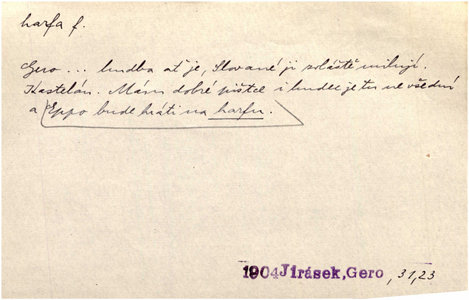 harfa f.
Gero ... hudba ať je, Slované ji zvláště milují.
Kastelán. Mám dobré pištce i hudec je tu ne všední
a Eppo bude hráti na harfu.
1904 Jirásek, Gero , 31,23